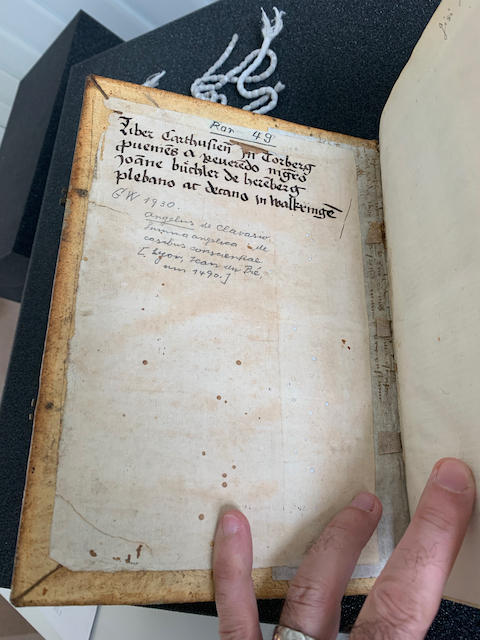 Rar 49
Liber Carthusieñ in Torberg
ꝓueniēs a Reueredo mgr̄o
Joāne bůchler de herēberg
plebano ac decano in Walkringē
GW 1930.
Angelus de Clavasio,
Summa angelica de
casibus conscientiae
[Lyon, Jean du Pré,
um 1490.]